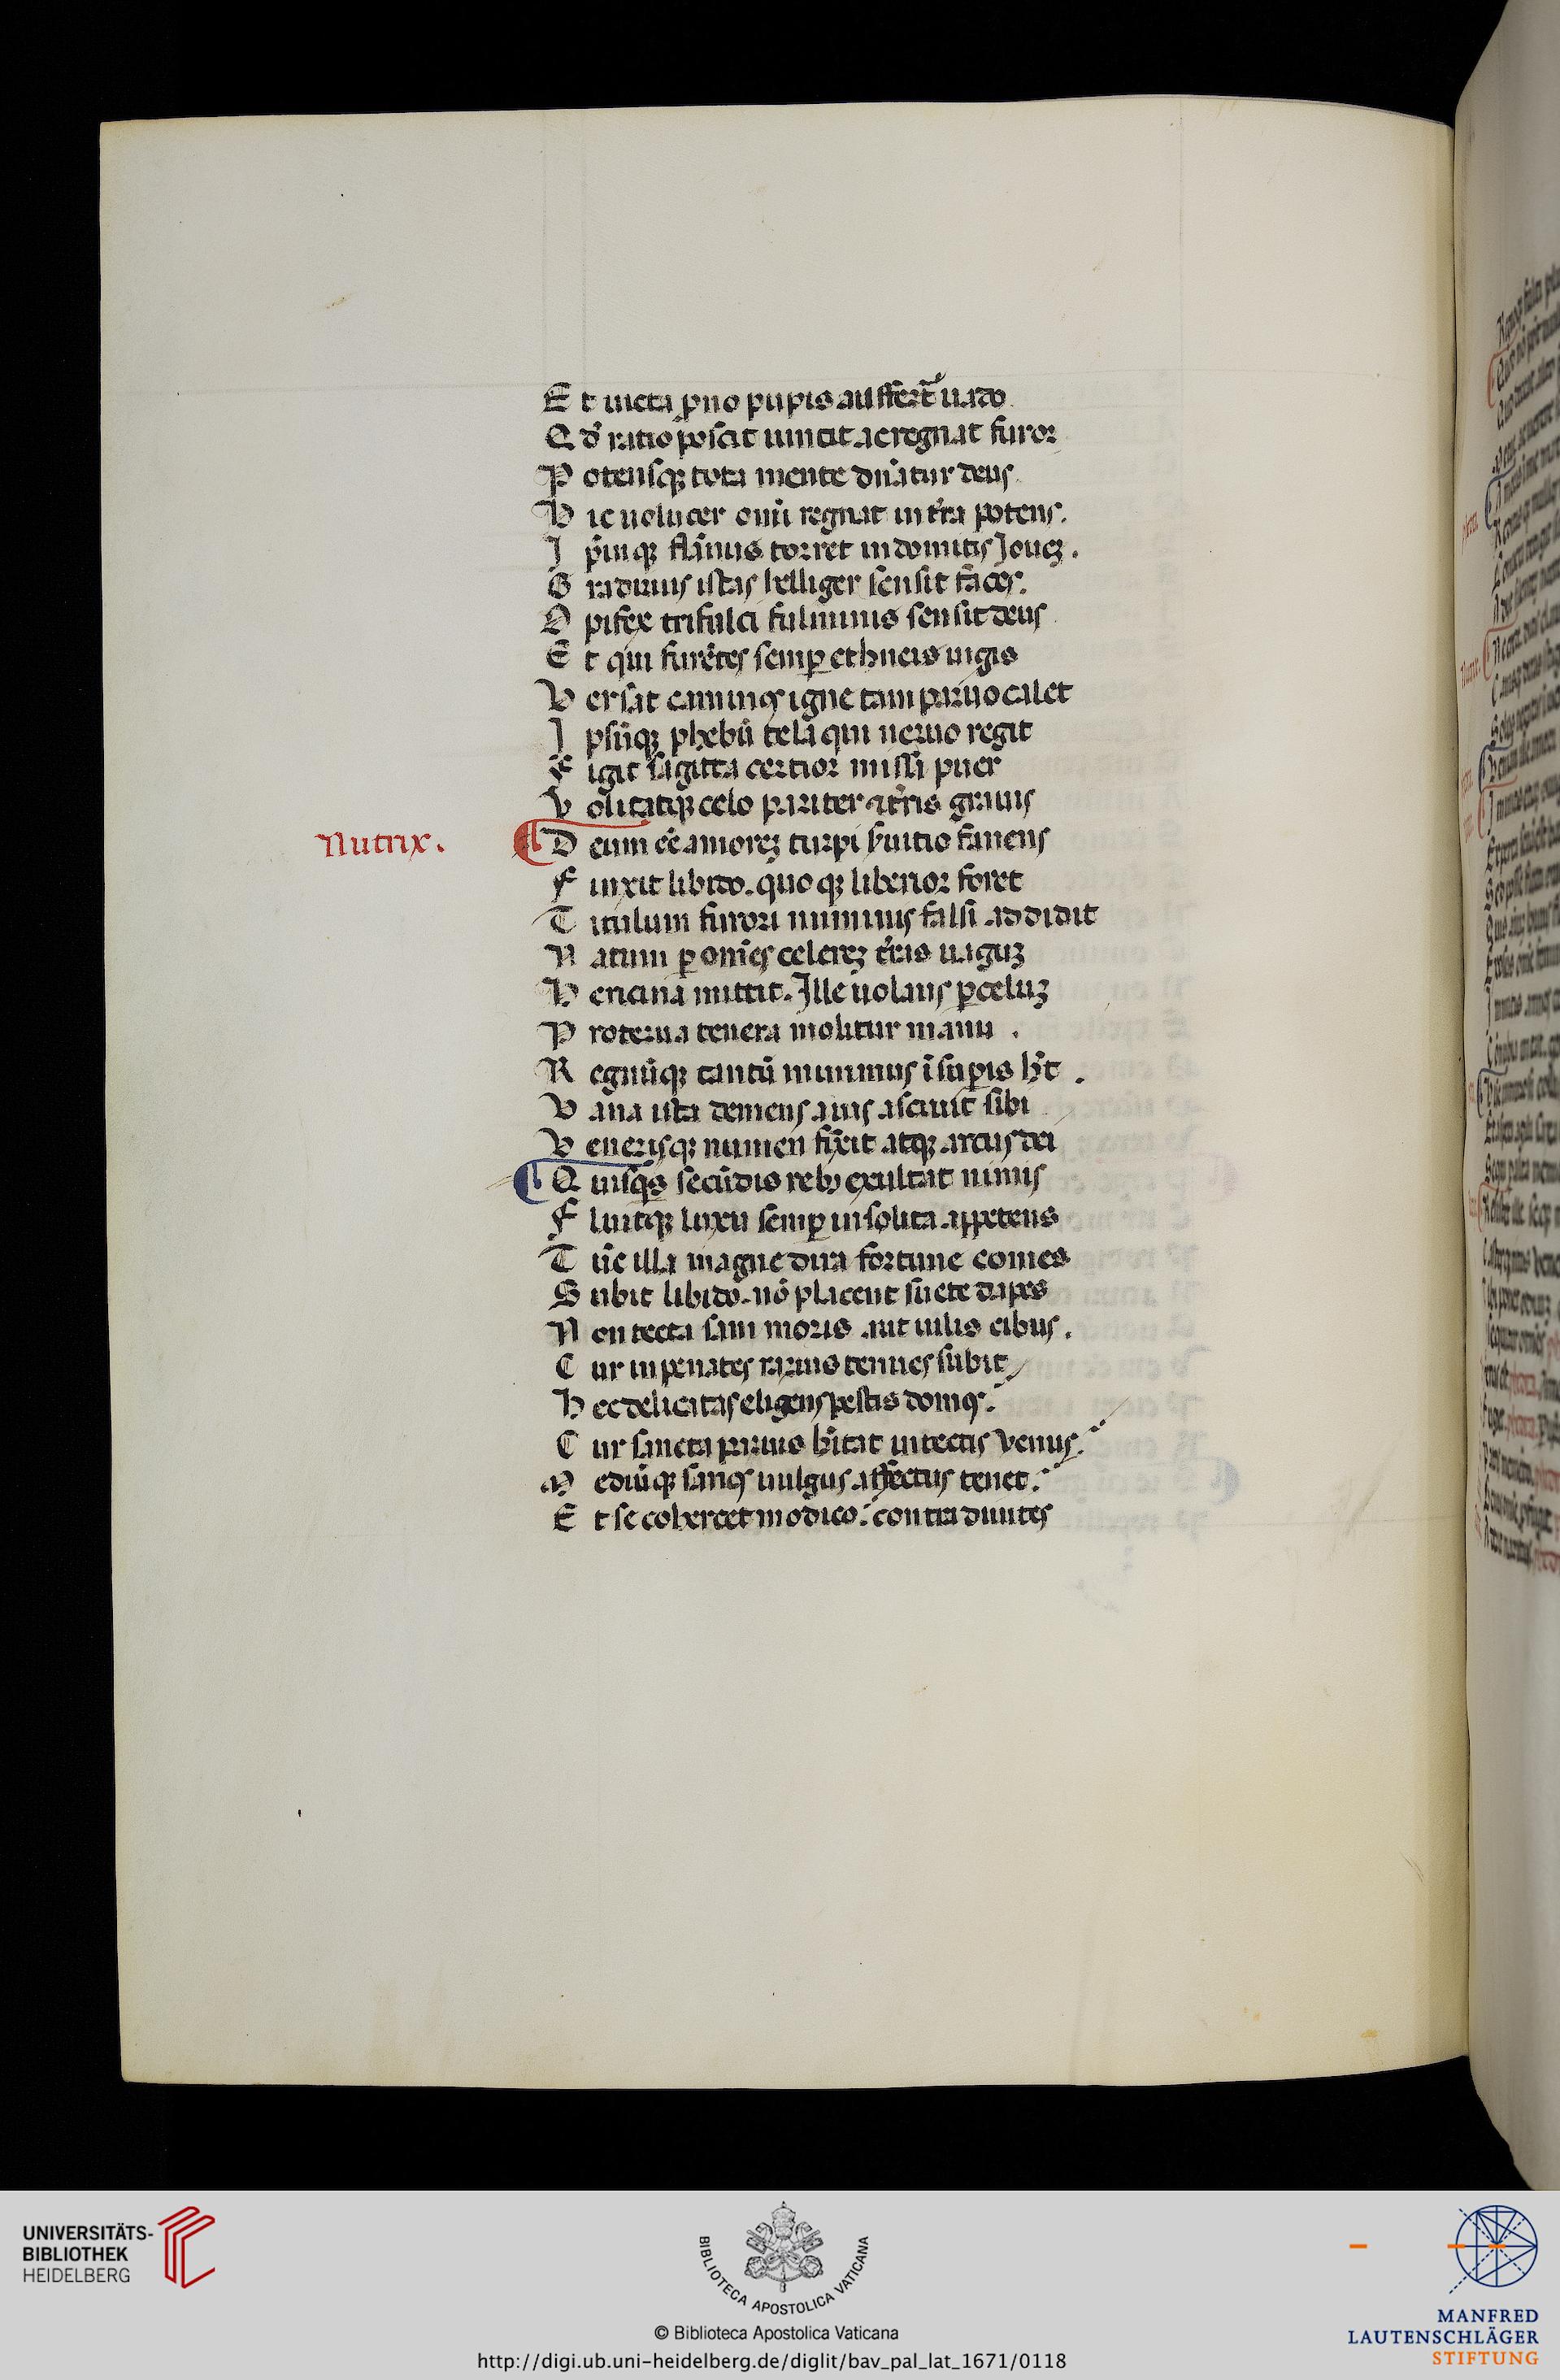 Et uicta ꝓno pupis auffert᷑ uado
Qd̛ ratio poscit uincit ac regnat furor
Potensqꝫ tota mente dn̄atur deus
Hic uolucer omī regnat in tr̄ra potens.
Ip̄umqꝫ flāmis torret indomitis Joueꝫ.
Gradiuus istas belliger sensit faces.
Opifex trifulci fulminis sensit deus
Et qui furētes semꝑ ethneis iugis
Versat caminꝰ igne tam paruo calet
Ipsūqꝫ phebū tela qui neruo regit
Figit sagitta certior missa puer
Volitatqꝫ celo pariter ⁊ tr̄ris grauis
Nutrix.
Deum eē amoreꝫ turpi ẜuitio fauens
Finxit libido. quo qꝫ liberior foret
Titulum furori numinis falsi addidit
Natum ꝑ omēs celereꝫ tr̄ras uaguꝫ
Hericina mittit. Ille uolans ꝑ celuꝫ
Proterua tenera molitur manu.
Regnūqꝫ tantū minimus ī suꝑis hēt.
Vana ista demens aius asciuit sibi
Venerisqꝫ numen fīxit atqꝫ arcus dei
Quisqͥs secūdis rebꝫ exultat nimis
Fluitqꝫ luxu semꝑ insolita appetens
Tūc illa magne dira fortune comes
Subit libido. nō placent suete dapes
Non tecta sani moris aut uilis cibus.
Cur in penates rarius tenues subit
Hec delicatas eligens pestis domꝰ.
Cur sancta paruis hītat in tectis Venus.
Mediūqꝫ sanoꝰ uulgus affectus tenet.
Et se cohercet modico. contra diuites
UNIVERSITÄTS-
BIBLIOTHEK
HEIDELBERG
BIBLIOTECA APOSTOLICA VATICANA
© Biblioteca Apostolica Vaticana
http://digi.ub.uni-heidelberg.de/diglit/bav_pal_lat_1671/0118
MANFRED
LAUTENSCHLÄGER
STIFTUNG